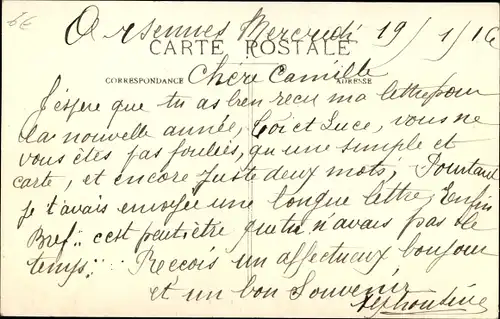 6€
Orsennes Mercredi 19/1/16
CARTE POSTALE
CORRESPONDANCE ADRESSE
Chère Camille
J'espère que tu as bien reçu ma lettre pour
la nouvelle année, Toi et Luce, vous ne
vous êtes pas foulées, qu'une simple et
carte, et encore juste deux mots; Pourtant
je t'avais envoyée une longue lettre; Enfin
Bref.. c'est peut être que tu n'avais pas le
temps.. Recois un affectueux bonjour
et un bon Souvenir
Alphonsine